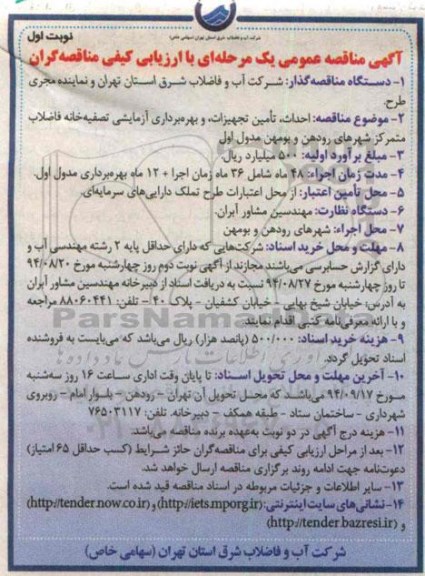 شرکت آب و فاضلاب شرق استان تهران (سهامی خاص)
نوبت اول
آگهی مناقصه عمومی یک مرحله‌ای با ارزیابی کیفی مناقصه‌گران
۱- دستگاه مناقصه‌گذار: شرکت آب و فاضلاب شرق استان تهران و نماینده مجری
طرح.
۲- موضوع مناقصه: احداث، تأمین تجهیزات، و بهره‌برداری آزمایشی تصفیه‌خانه فاضلاب
متمرکز شهرهای رودهن و بومهن مدول اول
۳- مبلغ برآورد اولیه: ۵۰۰ میلیارد ریال.
۴- مدت زمان اجراء: ۴۸ ماه شامل ۳۶ ماه زمان اجرا + ۱۲ ماه بهره‌برداری مدول اول.
۵- محل تأمین اعتبار: از محل اعتبارات طرح تملک دارایی‌های سرمایه‌ای.
۶- دستگاه نظارت: مهندسین مشاور آیران.
۷- محل اجراء: شهرهای رودهن و بومهن
۸- مهلت و محل خرید اسناد: شرکت‌هایی که دارای حداقل پایه ۲ رشته مهندسی آب و
دارای گزارش حسابرسی می‌باشند مجازند از آگهی نوبت دوم روز چهارشنبه مورخ ۹۴/۰۸/۲۰
تا روز چهارشنبه مورخ ۹۴/۰۸/۲۷ نسبت به دریافت اسناد از دبیرخانه مهندسین مشاور آیران
به آدرس: خیابان شیخ بهایی - خیابان کشفیان - پلاک ۴۰ - تلفن: ۸۸۰۶۰۴۴۱ مراجعه
و با ارائه معرفی‌نامه کتبی اقدام نمایند.
۹- هزینه خرید اسناد: ۵۰۰/۰۰۰ (پانصد هزار) ریال می‌باشد که می‌بایست به فروشنده
اسناد تحویل گردد.
۱۰- آخرین مهلت و محل تحویل اسناد: تا پایان وقت اداری ساعت ۱۶ روز سه‌شنبه
مورخ ۹۴/۰۹/۱۷ می‌باشد که محل تحویل آن تهران - رودهن - بلوار امام - روبروی
شهرداری - ساختمان ستاد - طبقه همکف - دبیرخانه. تلفن: ۷۶۵۰۳۱۱۷
۱۱- هزینه درج آگهی در دو نوبت به‌عهده برنده مناقصه می‌باشد.
۱۲- بعد از مراحل ارزیابی کیفی برای مناقصه‌گران حائز شرایط (کسب حداقل ۶۵ امتیاز)
دعوت‌نامه جهت ادامه روند برگزاری مناقصه ارسال خواهد شد.
۱۳- سایر اطلاعات و جزئیات مربوطه در اسناد مناقصه قید شده است.
۱۴- نشانی‌های سایت اینترنتی: (http://iets.mporg.ir) و (http://tender.now.co.ir)
و (http://tender.bazresi.ir)
شرکت آب و فاضلاب شرق استان تهران (سهامی خاص)